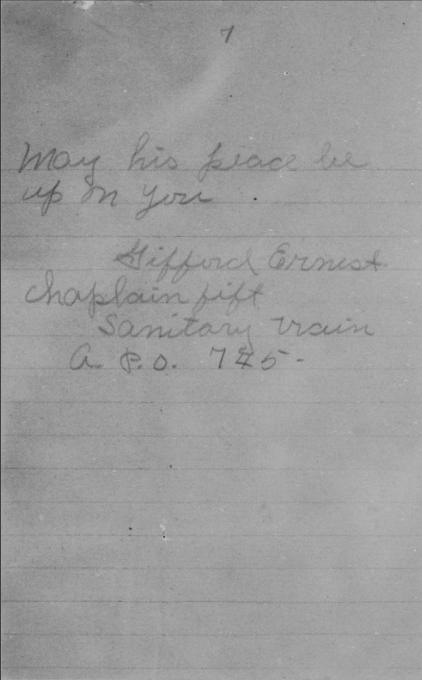 7
May his peace be
up on you.
Gifford Ernest
Chaplain fift
Sanitary train
A. P. O. 745-